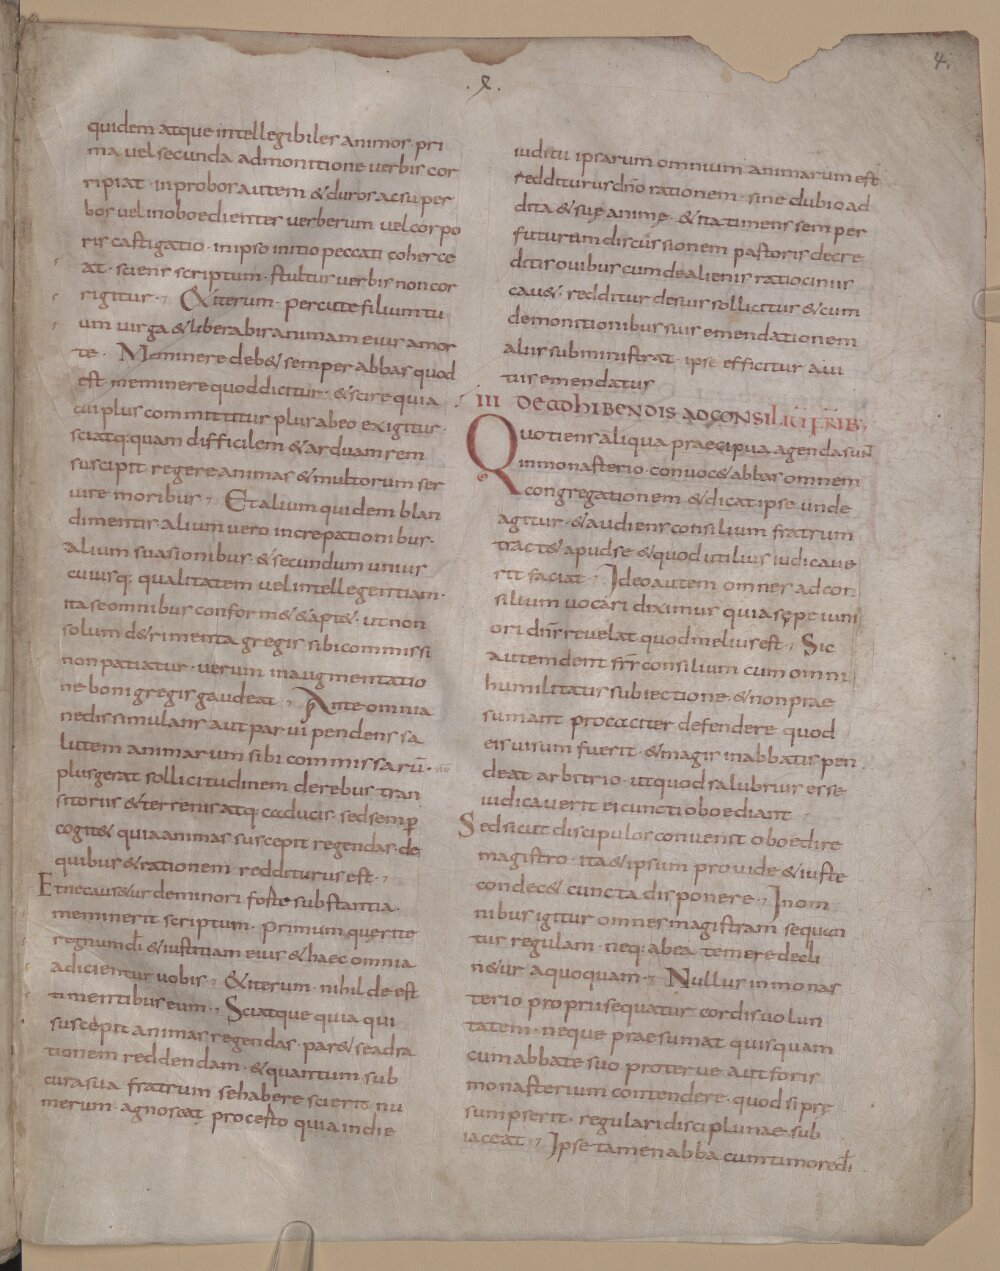 .x.
4.
quidem atque intellegibiles animos pri
ma vel secunda admonitione verbis cor
ripiat · inprobos autem & duros ac super
bos vel inoboedientes verberum vel corpo
ris castigatio · in ipso initio peccati coherce
at · sciens scriptum · stultus verbis non cor
rigitur · , & iterum · percute filium tu
um virga & liberabis animam eius a mor
te · Meminere deb& semper abbas quod
est · meminere quod dicitur · & scire quia
cui plus committitur plus ab eo exigitur ·
sciatq: quam difficilem & arduam rem
suscipit regere animas & multorum ser
vire moribus · , Et alium quidem blan
dimentis · alium vero increpationibus ·
alium suasionibus · & secundum unius
cuiusq; qualitatem vel intellegentiam ·
ita se omnibus conform& & apt& · ut non
solum d&rimenta gregis sibi commissi
non patiatur · verum in augmentatio
ne boni gregis gaudeat · , Ante omnia
ne dissimulans aut parvi pendens sa
lutem animarum sibi commissarū ·
plus gerat sollicitudinem de rebus tran
sitoriis & terrenis atq: caducis · sed semꝑ
cogit& quia animas suscepit regendas · de
quibus & rationem redditurus est · ,
Et ne caus&ur de minori forte substantia ·
meminerit scriptum · Primum querite
regnum dī & iustitiam eius & haec omnia
adicientur vobis · , & iterum · nihil de est
timentibus eum · , Sciatque quia qui
suscepit animas regendas · par& se ad ra
tionem reddendam · & quantum sub
cura sua fratrum se habere scierit nu
merum · agnoscat pro certo quia in die
iudicii ipsarum omnium animarum est
redditurus dn̄o rationem · sine dubio ad
dita & suę animę · & ita timens semper
futuram discussionem pastoris de cre
ditis ovibus cum de alienis ratiociniis
cav& · redditur de suis sollicitus & cum
de monitionibus suis emendationem
aliis subministrat · ipse efficitur a vi
tiis emendatus
III DE ADHIBENDIS AD CONSILIŪ FR̄IB;
Quotiens aliqua praecipua agenda sun̄
in monasterio · convoc& abbas omnem
congregationem & dicat ipse unde
agitur · & audiens consilium fratrum
tract& apud se & quod utilius iudicave
rit faciat · , Ideo autem omnes ad con
silium vocari diximus quia sępe iuni
ori dn̄s revelat quod melius est · , Sic
autem dent fr̄s consilium cum omni
humilitatis subiectione & non prae
sumant procaciter defendere quod
eis visum fuerit · & magis in abbatis pen
deat arbitrio · ut quod salubrius esse
iudicaverit ei cuncti oboediant
Sed sicut discipulos convenit oboedire
magistro · ita & ipsum provide & iuste
condec& cuncta disponere · , In om
nibus igitur omnes magistram sequan
tur regulam · neq: ab ea temere decli
n&ur a quoquam · , Nullus in monas
terio proprii sequatur cordis volun
tatem · neque praesumat quisquam
cum abbate suo proterve aut foris
monasterium contendere · quod si prę
sumpserit · regulari disciplinae sub
iaceat · , Ipse tamen abba cum timore dī